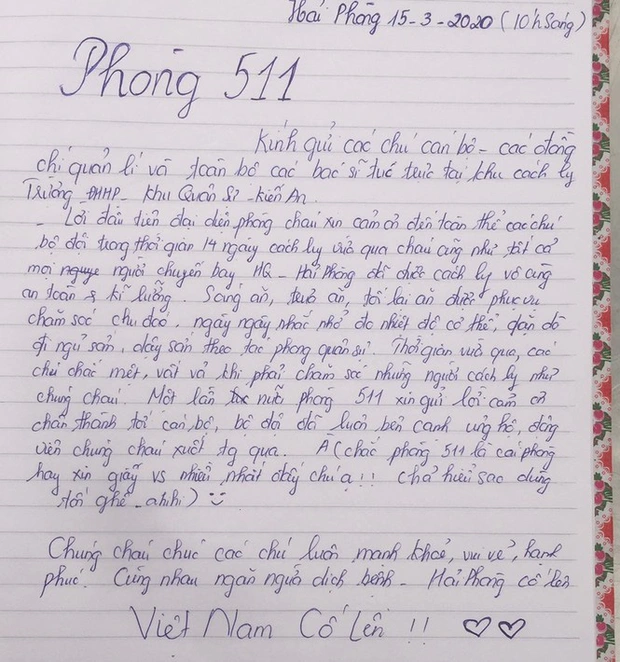 Hải Phòng 15-3-2020 (10h sáng)
Phòng 511
Kính gửi các chú cán bộ - các đồng
chí quản lí và toàn bộ các bác sĩ túc trực tại khu cách ly
Trường ĐHHP - khu Quân Sự - Kiến An.
- Lời đầu tiên đại diện phòng cháu xin cảm ơn đến toàn thể các chú
bộ đội trong thời gian 14 ngày cách ly vừa qua cháu cũng như tất cả
mọi nguye người chuyến bay HQ - Hải Phòng đã được cách ly vô cùng
an toàn & kĩ lưỡng. Sáng ăn, trưa ăn, tối lại ăn được phục vụ
chăm sóc chu đáo, ngày ngày nhắc nhở đo nhiệt độ cơ thể, dặn dò
đi ngủ sớm, dậy sớm theo tác phong quân sự. Thời gian vừa qua, các
chú chắc mệt, vất vả khi phải chăm sóc những người cách ly như
chúng cháu. Một lần nữa phòng 511 xin gửi lời cảm ơn
chân thành tới cán bộ, bộ đội đã luôn bên cạnh ủng hộ, động
viên chúng cháu xuốt tg qua. À (chắc phòng 511 là cái phòng
hay xin giấy vs nhiều nhất đấy chú ạ!! chả hiểu sao dùng
tốn ghê - ahihi) :)
Chúng cháu chúc các chú luôn mạnh khoẻ, vui vẻ, hạnh
phúc! Cùng nhau ngăn ngừa dịch bệnh - Hải Phòng cố lên
Việt Nam Cố Lên !! ♡♡